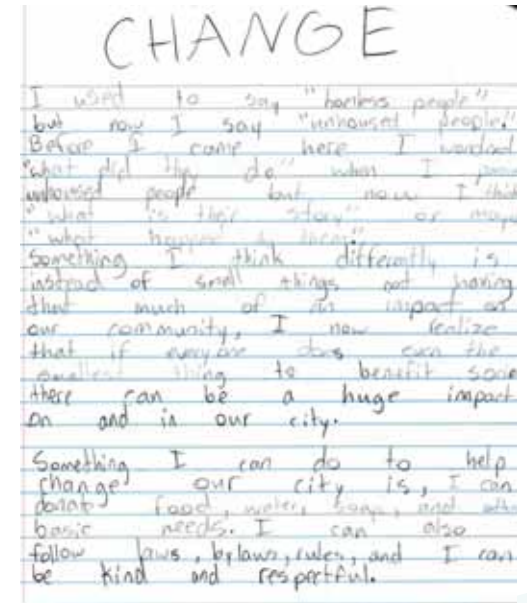 CHANGE
I used to say "homless people"
but now I say "unhoused people."
Before I came here I wondred
"what did they do" when I
unhoused people but now I think
"what is their story" or mayb
"what happen to them"
Something I think differently is
instead of small things not having
that much of an impact on
our community, I now realize
that if everyone does even the
smallest thing to benefit
there can be a huge impact
on and in our city.
Something I can do to help
change our city is, I can
donate food, water, soap, and
basic needs. I can also
follow laws, bylaws, rules, and I can
be kind and respectful.